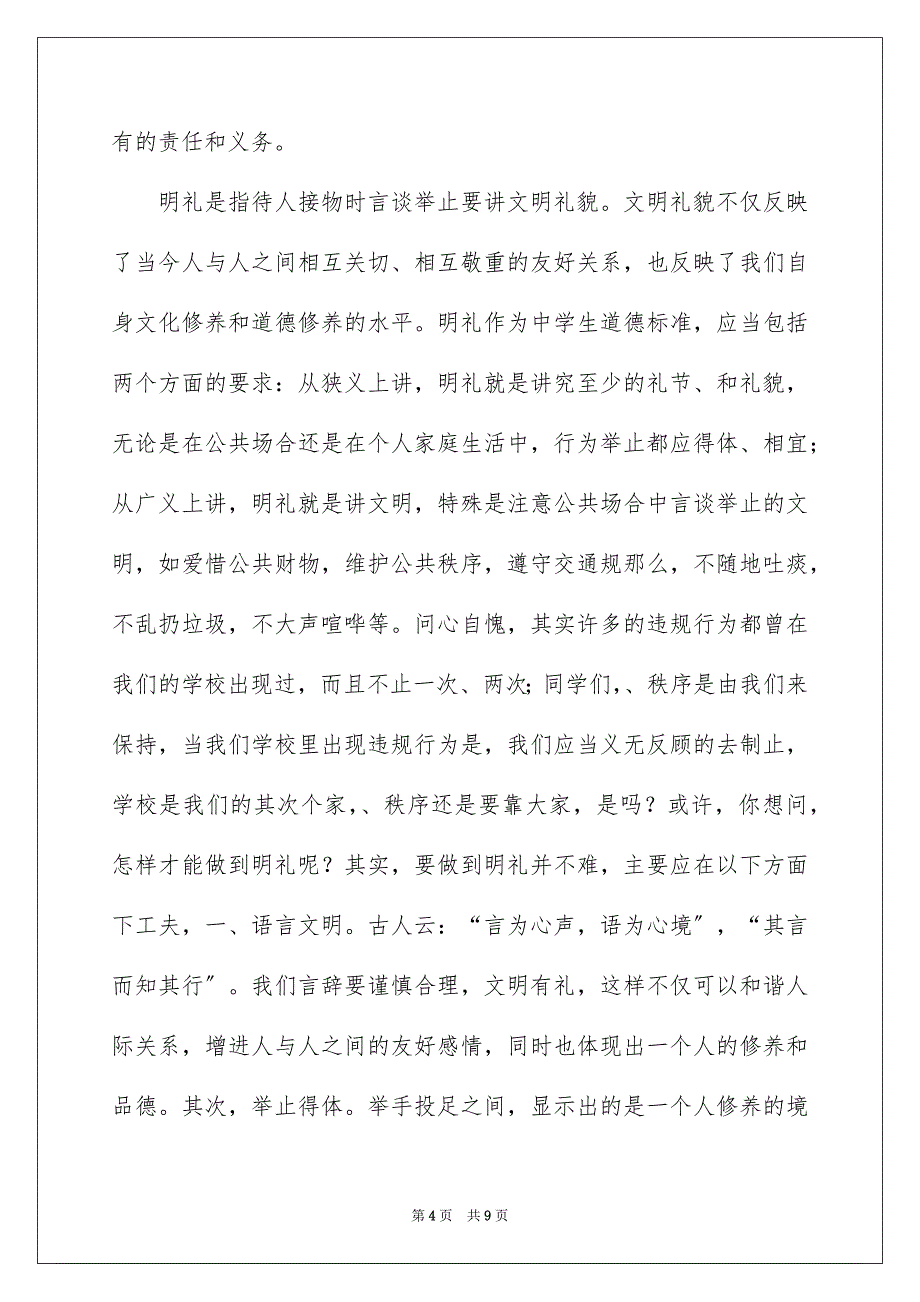 有的责任和义务。
明礼是指待人接物时言谈举止要讲文明礼貌。文明礼貌不仅反映
了当今人与人之间相互关切、相互敬重的友好关系，也反映了我们自
身文化修养和道德修养的水平。明礼作为中学生道德标准，应当包括
两个方面的要求：从狭义上讲，明礼就是讲究至少的礼节、和礼貌，
无论是在公共场合还是在个人家庭生活中，行为举止都应得体、相宜；
从广义上讲，明礼就是讲文明，特殊是注意公共场合中言谈举止的文
明，如爱惜公共财物，维护公共秩序，遵守交通规那么，不随地吐痰，
不乱扔垃圾，不大声喧哗等。问心自愧，其实许多的违规行为都曾在
我们的学校出现过，而且不止一次、两次；同学们，、秩序是由我们来
保持，当我们学校里出现违规行为是，我们应当义无反顾的去制止，
学校是我们的其次个家，、秩序还是要靠大家，是吗？或许，你想问，
怎样才能做到明礼呢？其实，要做到明礼并不难，主要应在以下方面
下工夫，一、语言文明。古人云：“言为心声，语为心境〞，“其言
而知其行〞。我们言辞要谨慎合理，文明有礼，这样不仅可以和谐人
际关系，增进人与人之间的友好感情，同时也体现出一个人的修养和
品德。其次，举止得体。举手投足之间，显示出的是一个人修养的境
第 4 页 共 9 页